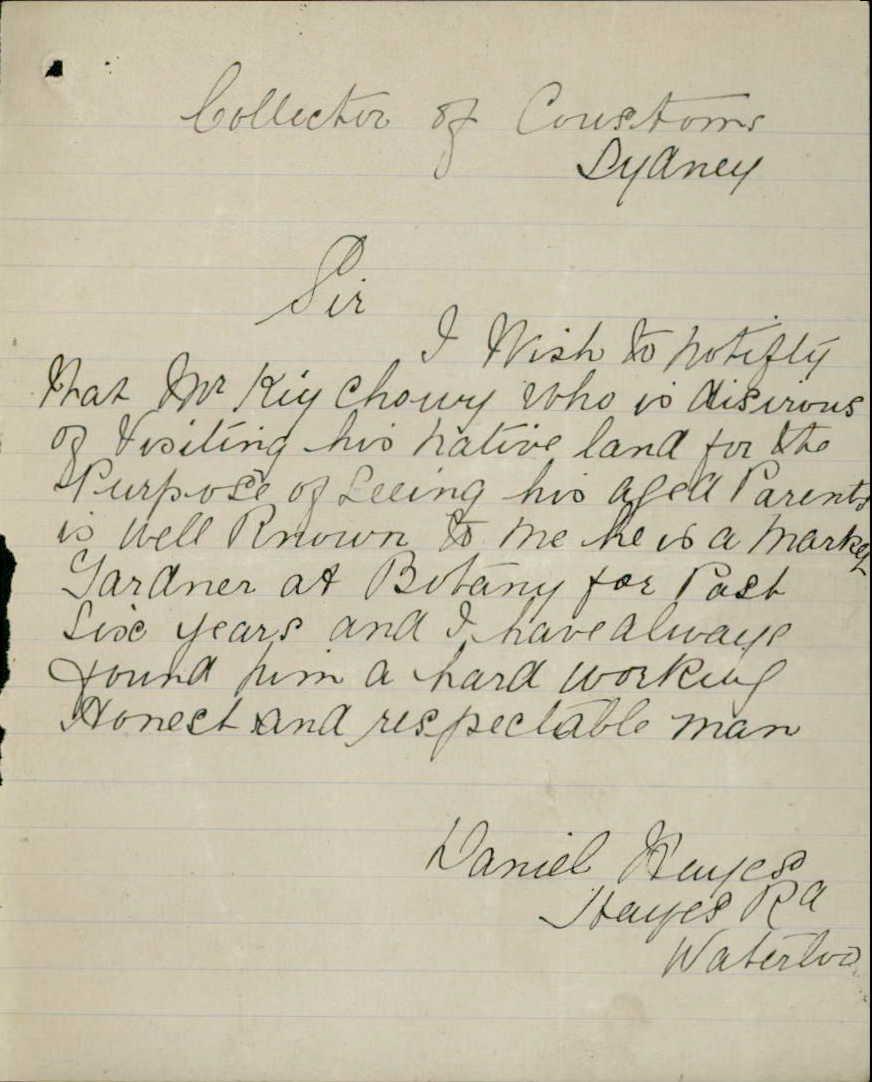 Collector of Coustoms
Sydney
Sir
I Wish to notifly
that Mr Kiy Chowy who is disirous
of visiting his native land for the
Purpose of Seeing his aged Parents
is well Known to me he is a market
Gardner at Botany for Past
Six years and I have always
found him a hard working
Honest and respectable man
Daniel Hayes
Hayes Rd
Waterloo